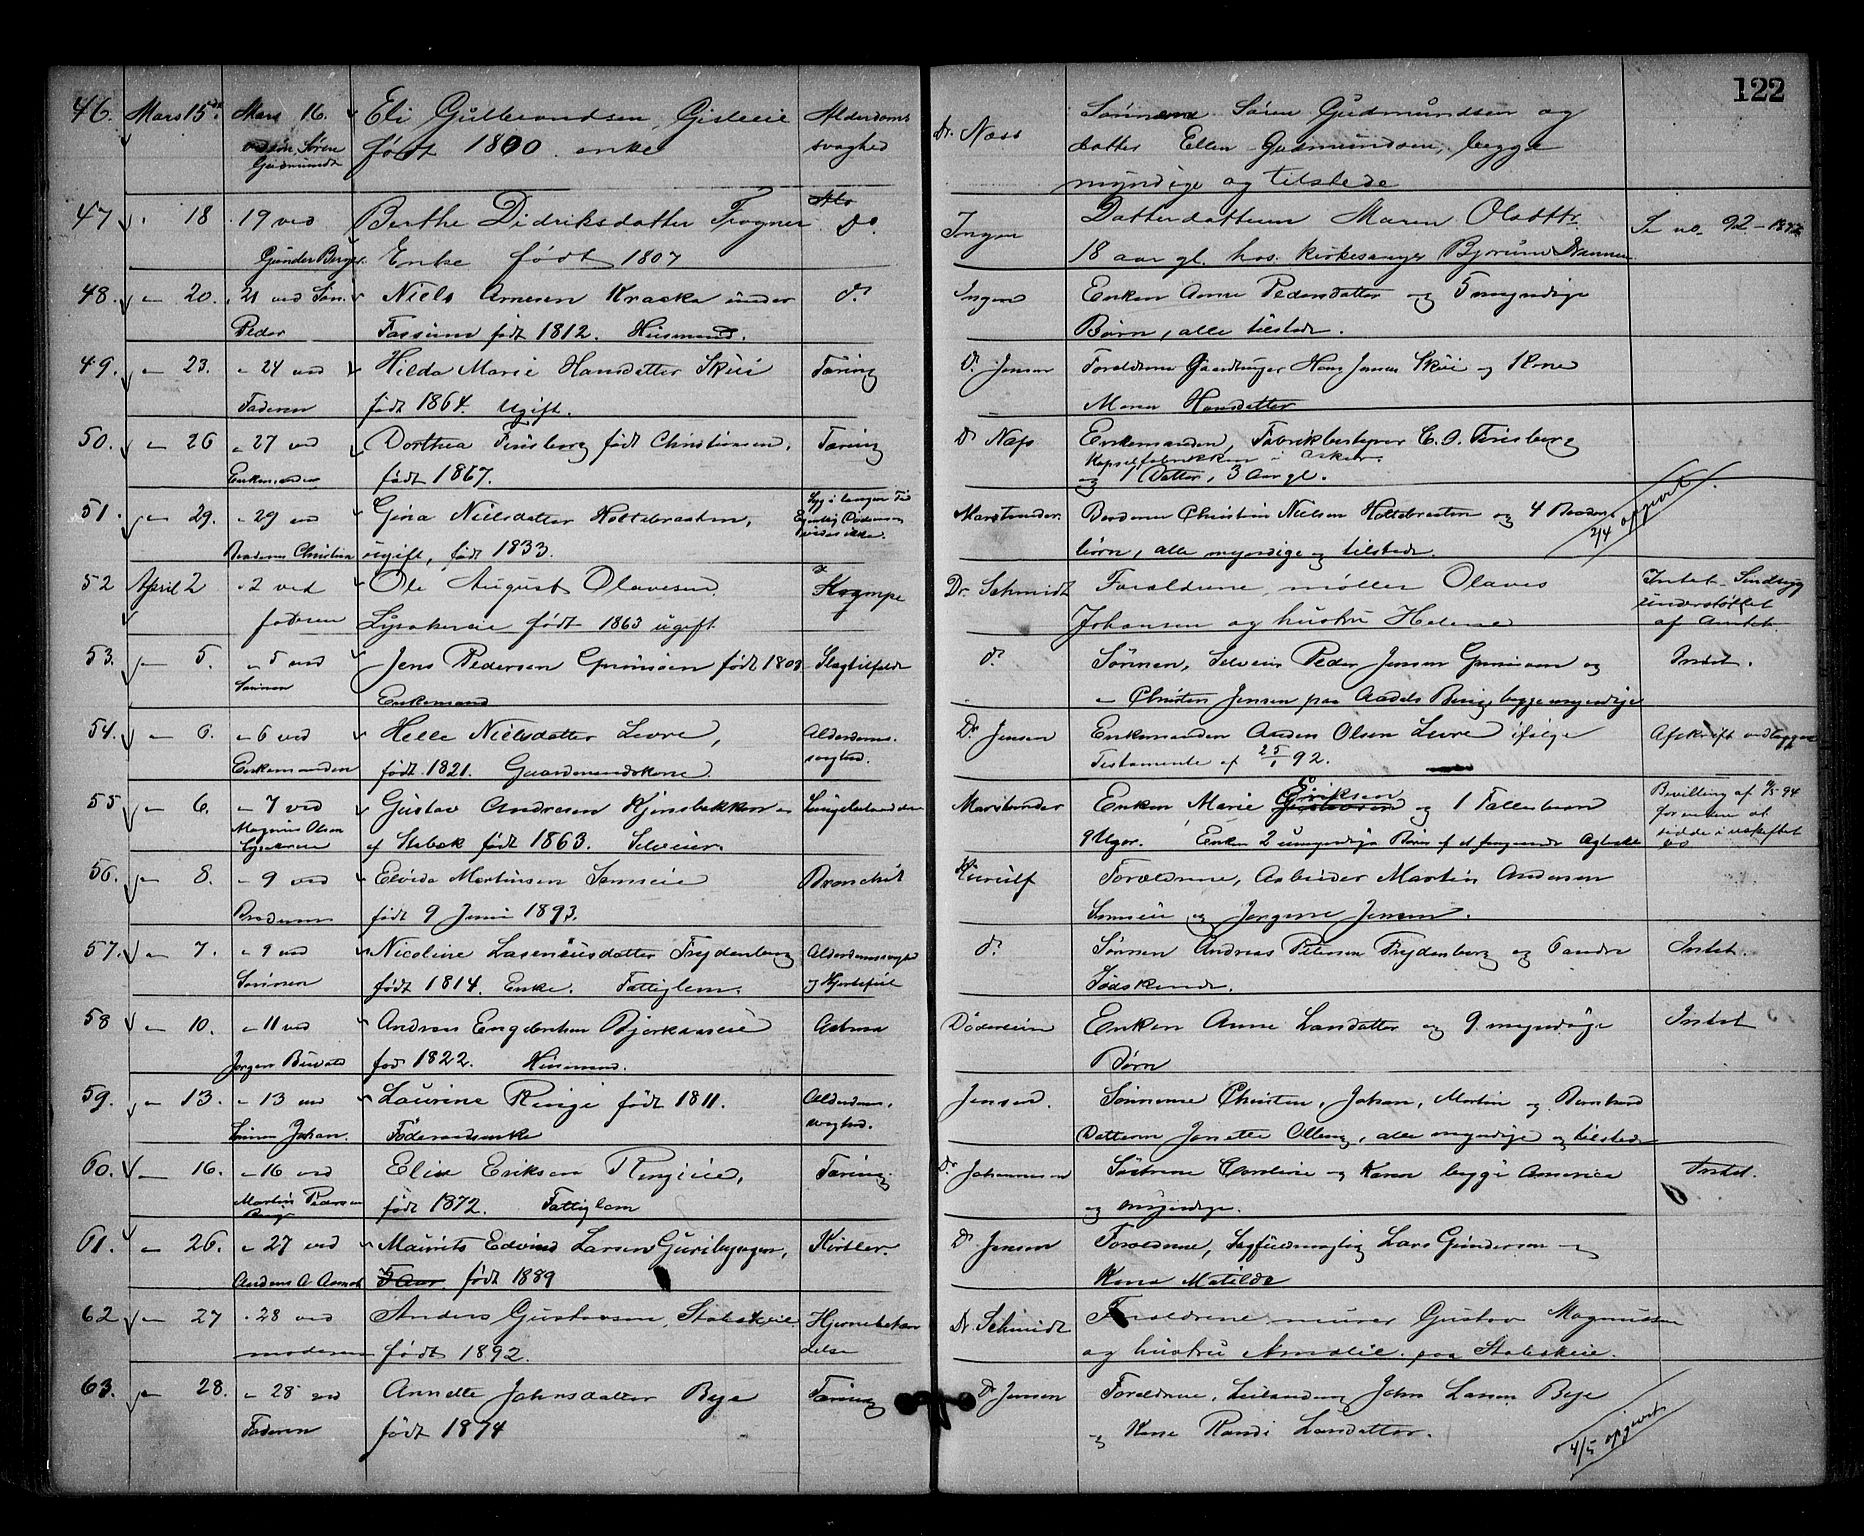 122
46. Mars 15de Mars 16. Eli Gulbrandsen, Gisleeie Alderdoms Dr. Næss Sønnen Søren Gudmundsen og
ved søn Søren født 1800 enke svaghed datter Ellen Gudmundsen, begge
Gudmundt myndige og tilstede
47 " 18 . 19 ved Berthe Didriksdatter Frogner do. Ingen Datterdatteren Maren Olsdttr.
Gunder Berger Enke født 1807 18 aar gl. hos Kirkesanger Bjerum
48. — 20. . 21 ved Søn. Niels Arnesen Kraaka under do. Ingen Enken Anne Pedersdatter og 5 myndige
Peder Tassum født 1812. Husmand. Børn, alle tilstede.
49. — 23. " 24 ved Hilda Marie Hansdatter Skui Tæring Dr. Jensen Forældrene Gaardbruger Hans Jensen Skui og Kone
Faderen født 1864. Ugift. Maren Hansdatter
50. — 26 " 27 ved Dorthea Friisberg født Christiansen, Tæring Dr. Næss Enkemanden, Fabrikbestyrer C. O. Friisberg
Enkemanden født 1867. Kapselfabrikken i Asker.
og 1 Datter, 3 Aar gl.
51. — 29. " 29 ved Gina Nielsdatter Holtebraaten, Syg i længer Tid Marstrander Broderen Christian Nielsen Holtebraaten og 4 Broder-
Broderen Christian ugift, født 1833. børn, alle myndige og tilstede. 2/4 opgivet
52 April 2 . 2 ved Ole August Olavesen Krampe Dr. Schmidt Forældrene, møller Olaves Intet. Sindssyg
faderen Lysakereie født 1863 ugift Johansen og hustru Helene understøttet
af Amtet.
53. — 5. " 5 ved Jens Pedersen Grinisen født 1803 Slagtilfælde do. Sønnen, Selveier Peder Jensen og Intet.
Sønnen Enkemand — Christen Jensen paa Berg, begge myndige
54. — 6. " 6 ved Helle Nielsdatter Levre, Alderdoms- Dr. Jensen Enkemanden Anders Olsen Levre ifølge Afskrift vedlægges
Enkemanden født 1821. Gaardmandskone svaghed. Testamente af 25/1 92.
55 — 6. " 7 ved Gustav Andresen Kjonsbakken Marstrander Enken Marie Eriksen og 1 Fællesbarn Bevilling af 94
Magnus Olsen af Stabæk født 1863. Selveier. 9 Uger. Enken 2 umyndige Børn af for enken at
Lysakereie sidde i uskiftet
bo
56. — 8. " 9 ved Elvida Martinsen Semseie Bronchit Kierulf Forældrene, Arbeider Martin Andersen
Broderen født 9 Juni 1893. Semseie og Jørgine Jensen.
57. — 7. " 9 ved Nicoline Lasenusdatter Frydenberg Alderdomssvaghed do. Sønnen Andreas Petersen Frydenberg og 6 andre Intet.
Sønnen født 1814. Enke. Fattiglem. og Hjertefeil Sødskende.
58 — 10. " 11 ved Andreas Engebretsen Bjerkaaseie Astma Döderlein Enken Anne Larsdatter og 9 myndige Intet
Jørgen født 1822. Husmand. Børn
59. — 13. " 13 ved Laurine Ringi født 1811. Alderdoms- Jensen. Sønnerne Christen, Johan, Martin og Bernhard
Sønnen Johan. Føderaadsenke svaghed. Datteren Janette Olberg, alle myndige og tilstede
60. — 16. " 16 ved Elise Eriksen Ringieie, Tæring Dr. Johannessen Søstrene Caroline og Karen begge i Amerika Intet.
Martin Pedersen født 1872. Fattiglem og myndige.
Ringi
61. — 26. " 27 ved Maurits Edvind Larsen Guribyeie, Kirtler. Dr. Jensen Forældrene, Lars Gundersen og
Anders A født 1889 Kone Matilde
62 — 27 . 28 ved Anders Gustavsen, Stabækeie Hjernebetæn Dr. Schmidt Forældrene murer Gustav Magnussen
moderen født 1892. delse og hustru Amalie. paa Stabækeie.
63. — 28. " 28 ved Annette Johnsdatter Bye Tæring Dr Jensen Forældrene, Leilænding John Larsen Bye
Faderen født 1874 og Kone Randi Larsdatter. 4/5 opgivet